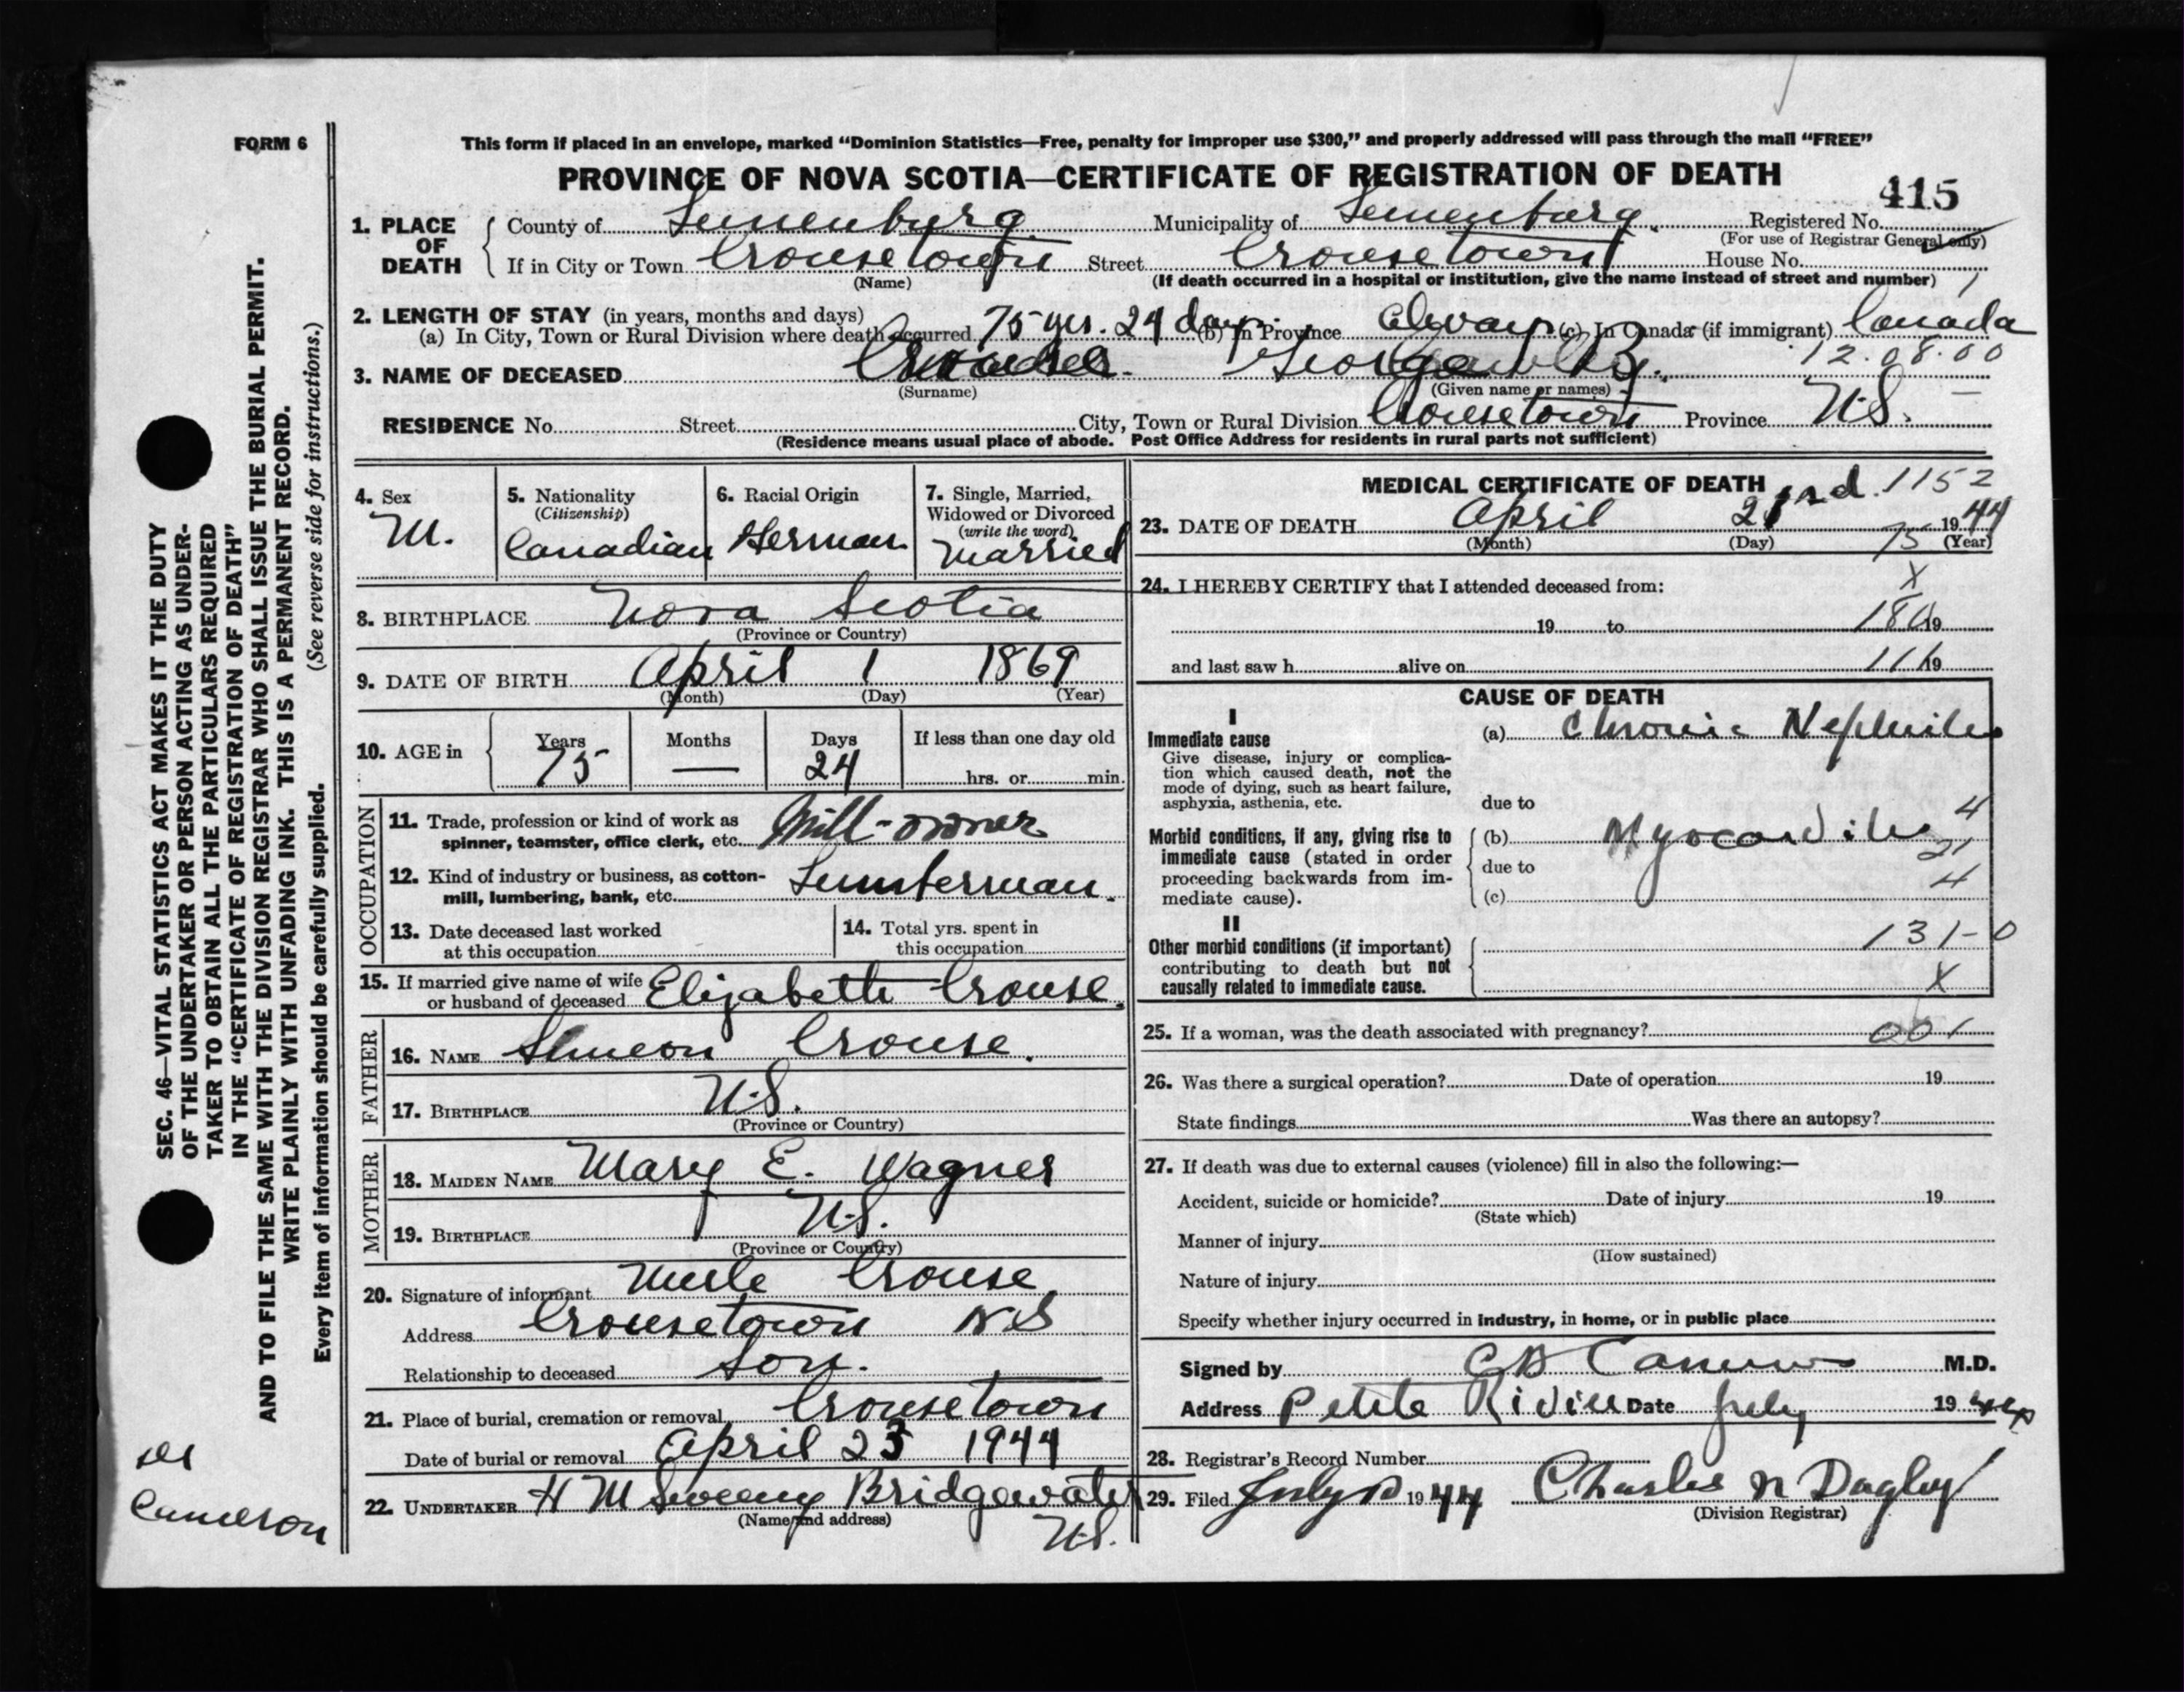 FORM 6
This form if placed in an envelope, marked "Dominion Statistics—Free, penalty for improper use $300," and properly addressed will pass through the mail "FREE"
PROVINCE OF NOVA SCOTIA—CERTIFICATE OF REGISTRATION OF DEATH
415
1. PLACE OF DEATH County of Lunenburg Municipality of Lunenburg Registered No.
(For use of Registrar General only)
If in City or Town Crousetown Street Crousetown House No.
(Name) (If death occurred in a hospital or institution, give the name instead of street and number) 1
2. LENGTH OF STAY (in years, months and days)
(a) In City, Town or Rural Division where death occurred 75 yrs. 24 days (b) In Province Always (c) In Canada (if immigrant) Canada
3. NAME OF DECEASED Crouse George 12.08.00
(Surname) (Given name or names)
RESIDENCE No. Street City, Town or Rural Division Crousetown Province N.S.
(Residence means usual place of abode. Post Office Address for residents in rural parts not sufficient)
4. Sex
M.
5. Nationality
(Citizenship)
Canadian
6. Racial Origin
German
7. Single, Married, Widowed or Divorced
(write the word)
Married
8. BIRTHPLACE Nova Scotia
(Province or Country)
9. DATE OF BIRTH April 1 1869
(Month) (Day) (Year)
10. AGE in Years Months Days If less than one day old
75 — 24 hrs. or min.
OCCUPATION
11. Trade, profession or kind of work as
spinner, teamster, office clerk, etc. Mill-owner
12. Kind of industry or business, as cotton-
mill, lumbering, bank, etc. Lumberman.
13. Date deceased last worked
at this occupation
14. Total yrs. spent in
this occupation
15. If married give name of wife
or husband of deceased Elizabeth Crouse.
FATHER
16. NAME Simeon Crouse.
17. BIRTHPLACE N.S.
(Province or Country)
MOTHER
18. MAIDEN NAME Mary E. Wagner
19. BIRTHPLACE N.S.
(Province or Country)
20. Signature of informant Merle Crouse
Address Crousetown N S
Relationship to deceased Son.
21. Place of burial, cremation or removal Crousetown
Date of burial or removal April 23 1944
22. UNDERTAKER H M Sweeny Bridgewater
(Name and address) N.S.
MEDICAL CERTIFICATE OF DEATH 1152
23. DATE OF DEATH April 1944
(Month) (Day) 75 (Year)
24. I HEREBY CERTIFY that I attended deceased from: X
19 to 180 19
and last saw h alive on 111 19
CAUSE OF DEATH
I
Immediate cause
Give disease, injury or complica-
tion which caused death, not the
mode of dying, such as heart failure,
asphyxia, asthenia, etc.
(a) Chronic Nephritis
due to
Morbid conditions, if any, giving rise to
immediate cause (stated in order
proceeding backwards from im-
mediate cause).
(b) Myocarditis 4
due to 21
(c) 4
II
Other morbid conditions (if important) 131-0
contributing to death but not
causally related to immediate cause. X
25. If a woman, was the death associated with pregnancy? 001
26. Was there a surgical operation? Date of operation 19
State findings Was there an autopsy?
27. If death was due to external causes (violence) fill in also the following:—
Accident, suicide or homicide? Date of injury 19
(State which)
Manner of injury
(How sustained)
Nature of injury
Specify whether injury occurred in industry, in home, or in public place
Signed by M.D.
Address Petite Riviere Date July 1944
28. Registrar's Record Number
29. Filed July 1944 Charles N Dagley
(Division Registrar)
SEC. 46—VITAL STATISTICS ACT MAKES IT THE DUTY
OF THE UNDERTAKER OR PERSON ACTING AS UNDER-
TAKER TO OBTAIN ALL THE PARTICULARS REQUIRED
IN THE "CERTIFICATE OF REGISTRATION OF DEATH"
AND TO FILE THE SAME WITH THE DIVISION REGISTRAR WHO SHALL ISSUE THE BURIAL PERMIT.
WRITE PLAINLY WITH UNFADING INK. THIS IS A PERMANENT RECORD.
Every item of information should be carefully supplied. (See reverse side for instructions.)
Cameron